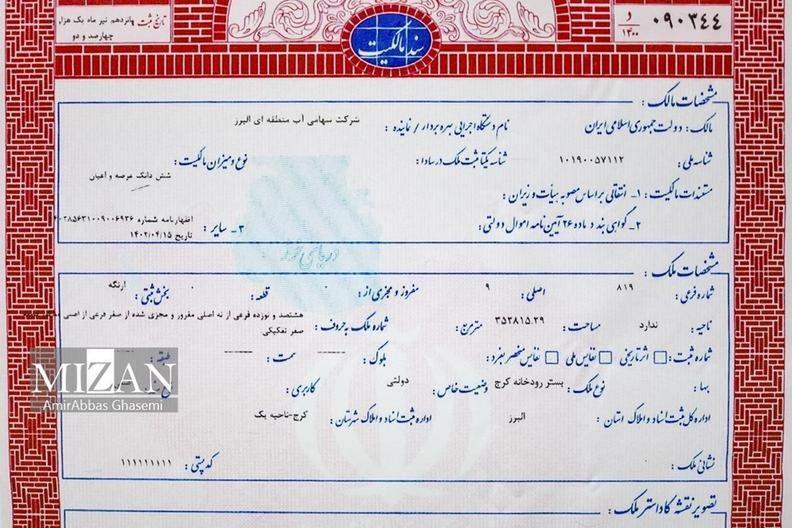 تاریخ ثبت پانزدهم تیر ماه یک هزار
چهارصد و دو
سند مالکیت
۰۹۰۳۴۴ و ۱۳۰۰
مشخصات مالک :
مالک : دولت جمهوری اسلامی ایران نام دستگاه اجرایی بهره بردار / نماینده : شرکت سهامی آب منطقه ای البرز
شناسه ملی : ۱۰۱۹۰۰۵۷۱۱۲ شناسه یکتا ثبت ملک در سادا : نوع و میزان مالکیت :
شش دانگ عرصه و اعیان
مستندات مالکیت : ۱- انتقالی بر اساس مصوبه هیأت وزیران :
۲- گواهی بند د ماده ۲۶ آیین نامه اموال دولتی : ۳- سایر : اظهارنامه شماره
تاریخ ۱۴۰۲/۰۴/۱۵
مشخصات ملک :
شماره فرعی : ۸۱۹ اصلی : ۹ مفروز و مجزی از : ۰ قطعه : ۰ بخش ثبتی : ارنگه
ناحیه : ندارد مساحت : ۳۵۳۸۱۵.۲۹ متر مربع شماره ملک به حروف : هشتصد و نوزده فرعی از نه اصلی مفروز و مجزی شده از صفر فرعی از اصلی
صفر تفکیکی
شماره ثبت : اثر تاریخی نفایس ملی نفایس منحصر بفرد : بلوک : سمت : طبقه :
بها : نوع ملک : بستر رودخانه کرج وضعیت خاص : دولتی کاربری :
اداره کل ثبت اسناد و املاک استان : البرز اداره ثبت اسناد و املاک شهرستان : کرج-ناحیه یک
نشانی ملک : کد پستی : ۱۱۱۱۱۱۱۱۱
تصویر نقشه کاداستر ملک :
MIZAN
AmirAbbas Ghasemi